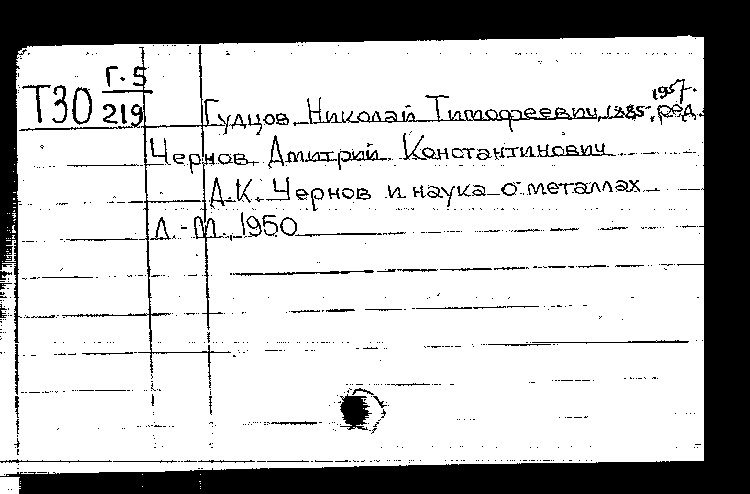 Г.5
Т30 219
1957.
Гудцов, Николай Тимофеевич, 1885, ред.
Чернов, Дмитрий Константинович
Д.К. Чернов и наука о металлах
Л.-М., 1950